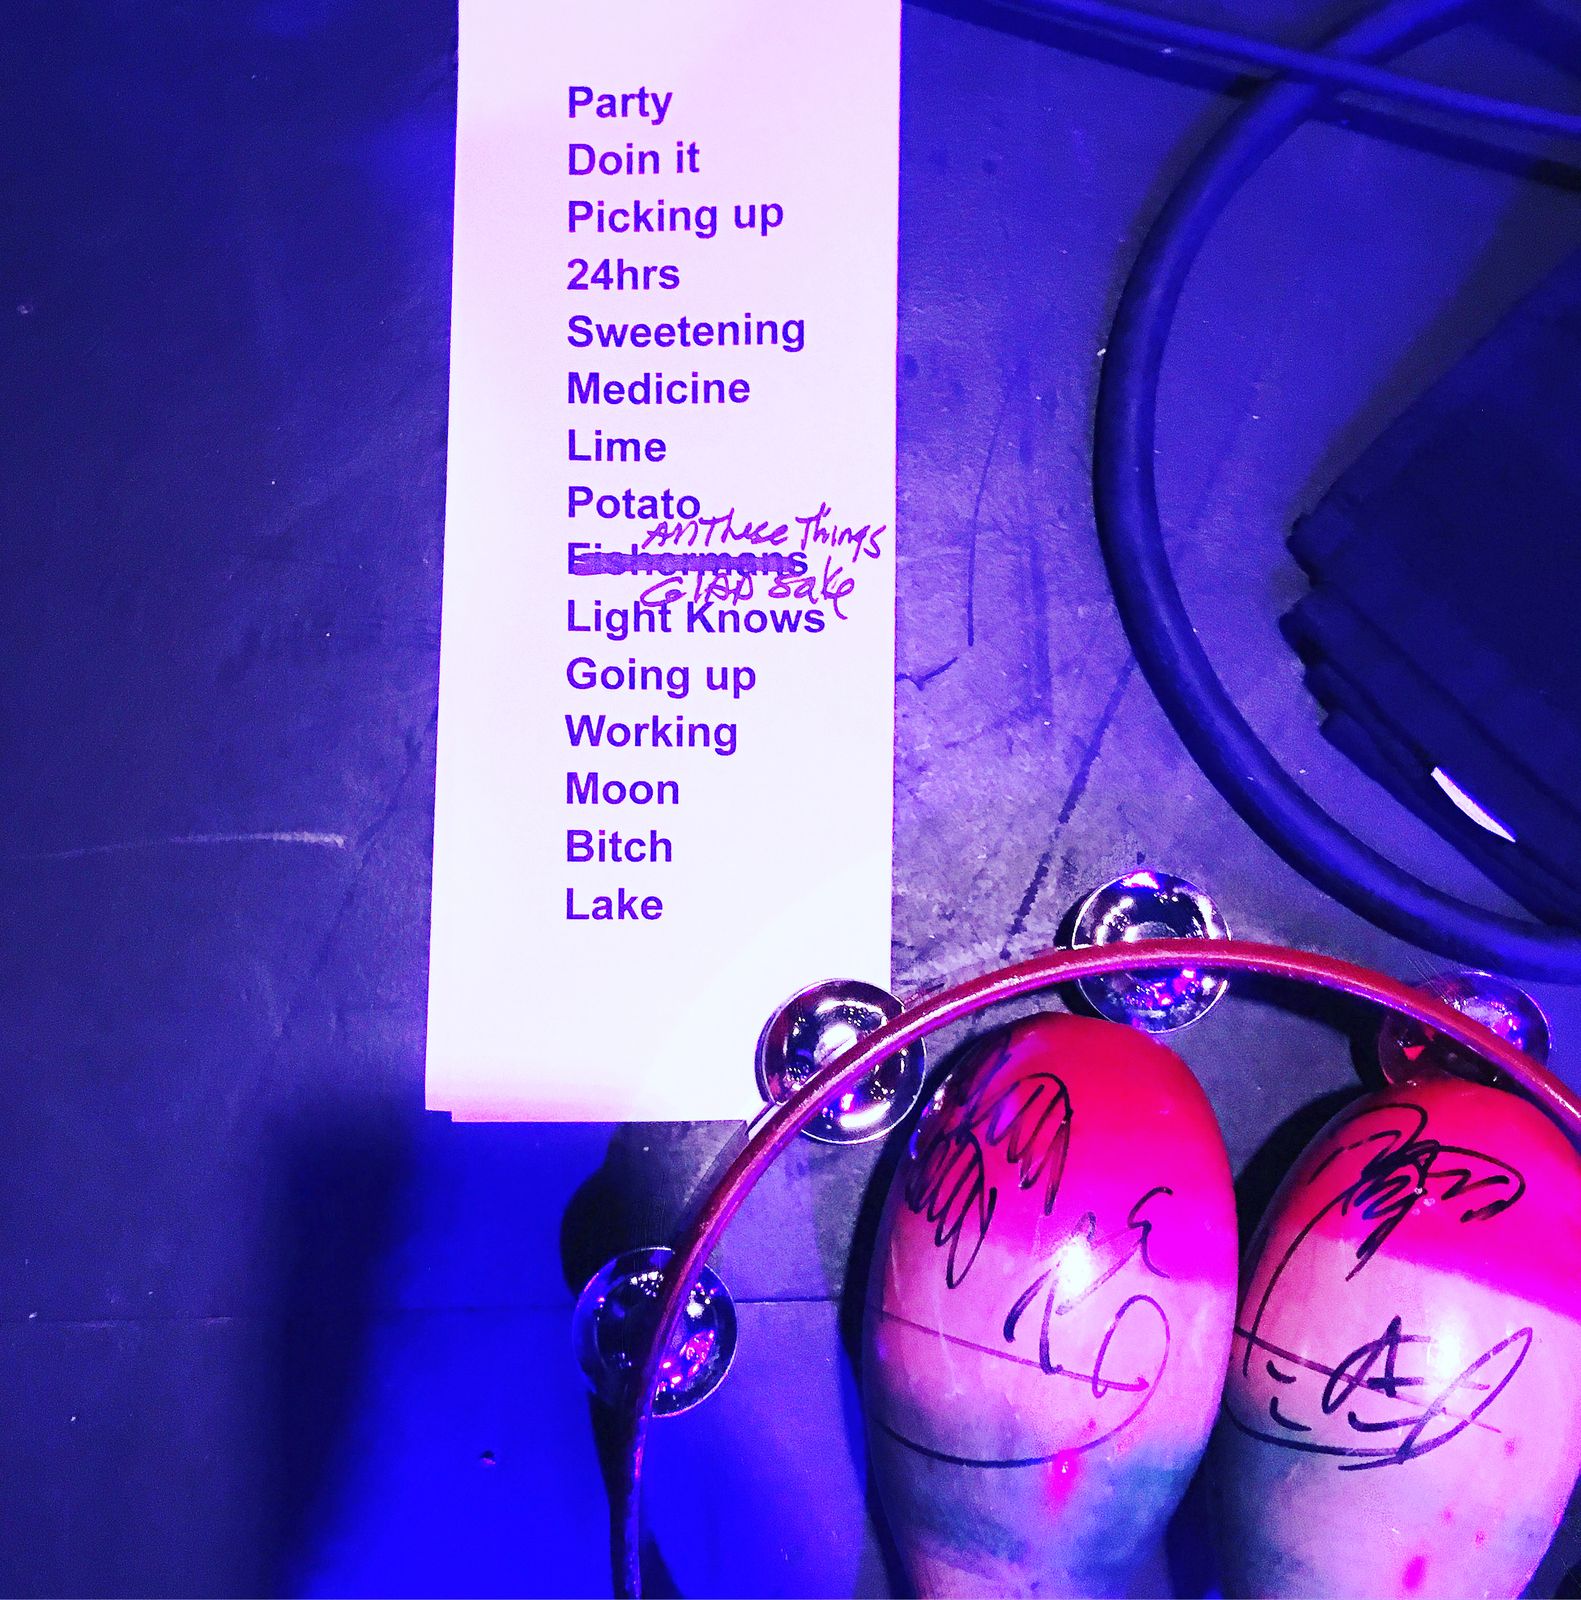 Party
Doin it
Picking up
24hrs
Sweetening
Medicine
Lime
Potato
All These Things
Fishermans
GLAD Sake
Light Knows
Going up
Working
Moon
Bitch
Lake